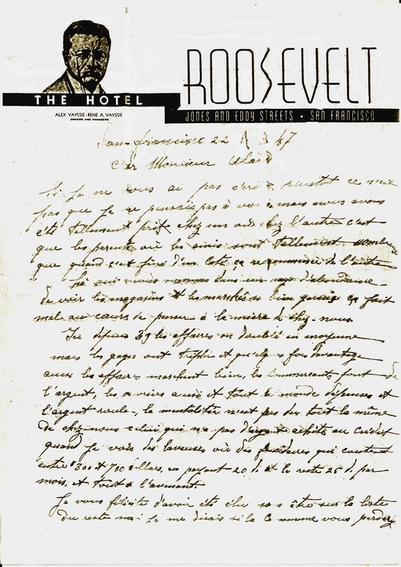 THE HOTEL
ROOSEVELT
ALEX VAYSSIE - RENE A. VAYSSIE
OWNERS AND MANAGERS
JONES AND EDDY STREETS • SAN FRANCISCO
San-francisco 22 47
Cher Monsieur
Si je ne vous ai pas écrit plustot ce n'est
pas que je ne pensais pas à vous mais nous avons
été tellement prit chez un ou chez l'autre c'est
que les parents où les amis sont tellement nombreux
que quand c'est fini d'un coté ça recommence de l'autre
nous dans un pays d'abondance
de voir les magasins et les marchés si bien garnis ça fait
mal au cœur de penser à la misère de chez-nous.
Ici depuis 39 les affaires on doublé en moyenne
mais les gages ont triplé et quelques fois davantage
aussi les affaires marchent bien, les commercants font de
l'argent, les ouvriers aussi et tout le monde dépense et
l'argent roule, la mentalitée n'est pas du tout la même
de chez-nous celui qui n'a pas d'argent achète au crédit
quand je vois des laveuses où des qui coutent
entre 300 et 700 dollars, en payant 20 d. et le reste 25 d. par
mois, et tout à l'avenant.
Je vous félicite d'avoir été sur la liste
du reste moi je me disais si la Commune vous